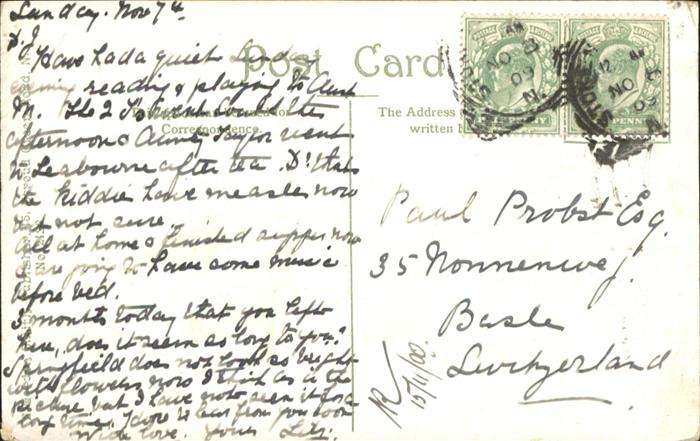 Sunday. Nov 7th
D. J.
Have had a quiet Sunday
reading & playing to Aunt
M. The 2 J's went South the
afternoon & Aunty & went
to Seabourne after tea. Dr thinks
the kiddie have measles now
but not sure.
All at home & finished supper now
& are going to have some music
before bed.
3 months today that you left
here, does it seem so long to you?
Springfield does not look so bright
with flowers now I think as in the
picture but I have not seen it for a
long time. Hope to hear from you soon
With love. Yours
Post Card
The Address
written
Correspondence.
Paul Probst Esq.
35 Nonnenweg
Basle
Switzerland
R 15/11/09.